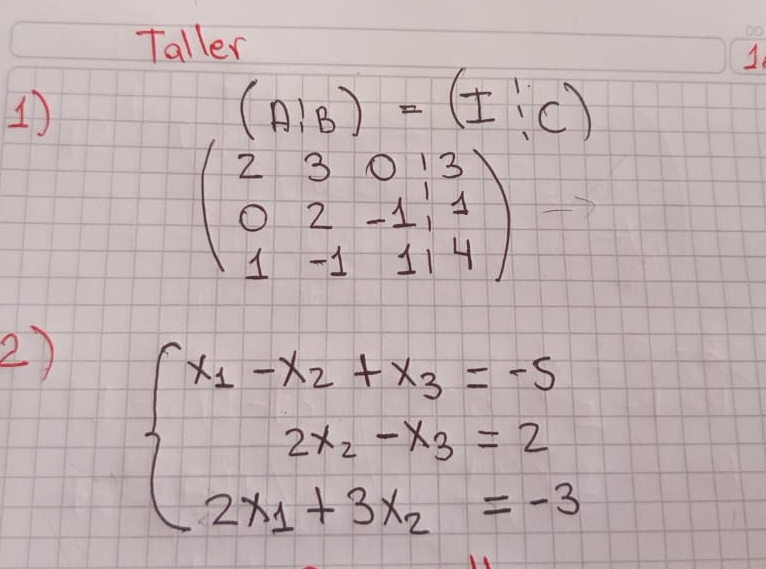 Taller
1)
(A¦B) = (I¦C)
2 3 0 ¦ 3
0 2 -1 ¦ 1
1 -1 1 ¦ 4
→
2)
x₁ - x₂ + x₃ = -5
2x₂ - x₃ = 2
2x₁ + 3x₂ = -3